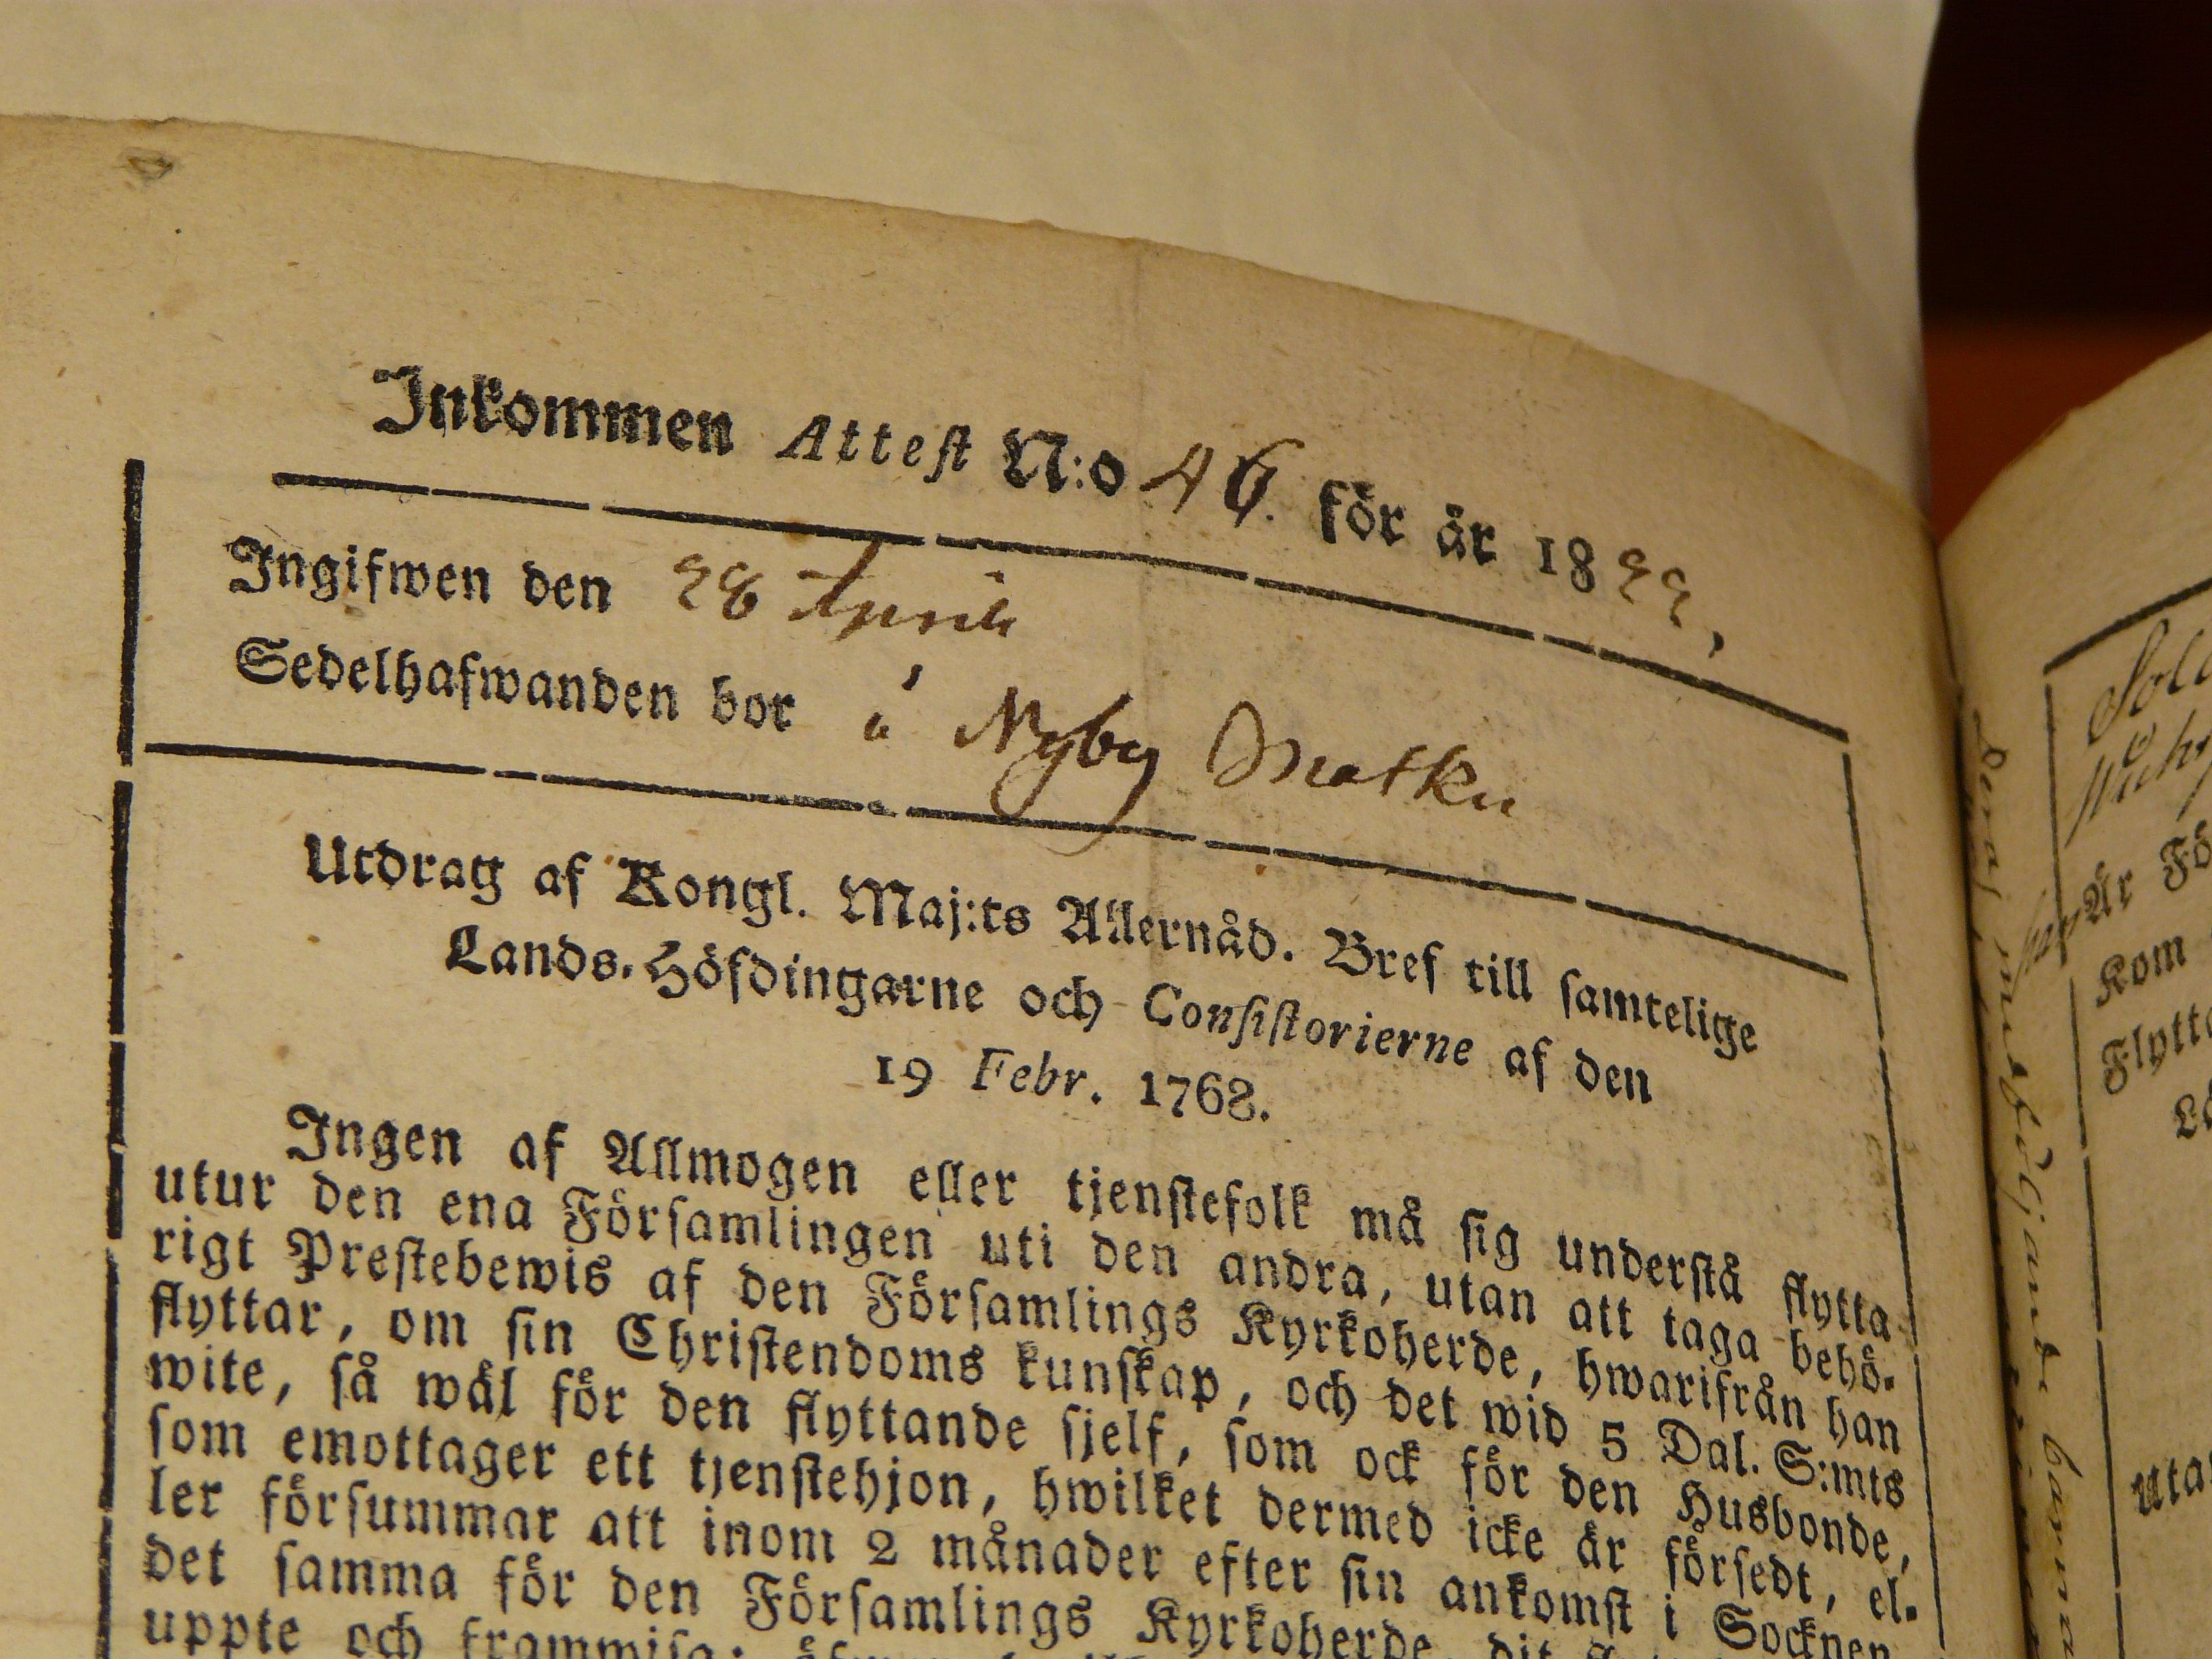 Inkommen Attest N:o 46. för år 1822,
Ingifwen den 28 April
Sedelhafwanden bor i Nyby
Utdrag af Kongl. Maj:ts Allernåd. Bref till samtelige
Lands-Höfdingarne och Consistorierne af den
19 Febr. 1768.
Ingen af Allmogen eller tjenstefolk må sig understå flytta
utur den ena Församlingen uti den andra, utan att taga behö-
rigt Prestebewis af den Församlings Kyrkoherde, hwarifrån han
flyttar, om sin Christendoms kunskap, och det wid 5 Dal. S:mts
wite, så wäl för den flyttande sjelf, som ock för den Husbonde,
som emottager ett tjenstehjon, hwilket dermed icke är försedt, el-
ler försummar att inom 2 månader efter sin ankomst i Socknen
det samma för den Församlings Kyrkoherde, dit
uppte och frammisa;
Är
Kom